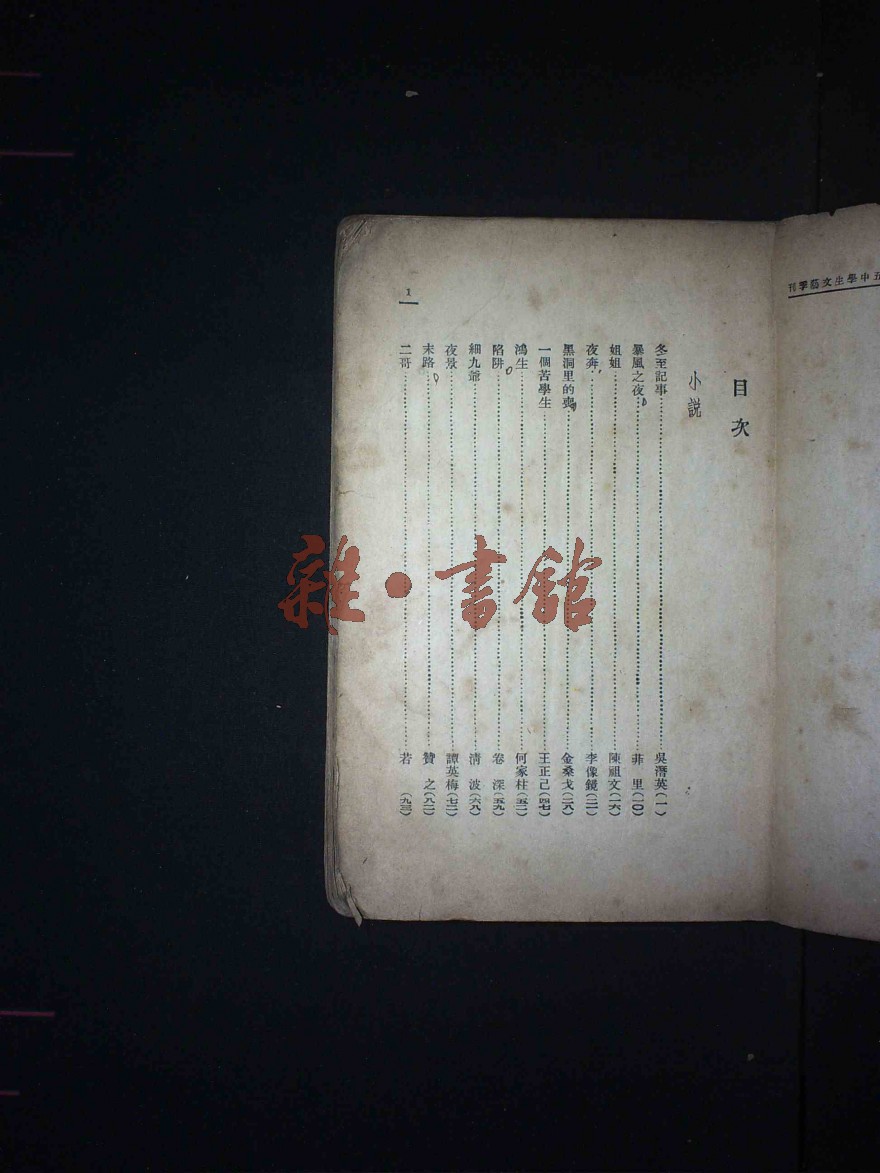 五中學生文藝季刊
目次
小說
冬至記事 吳潛英(一)
暴風之夜 菲里(一〇)
姐姐 陳祖文(一六)
夜奔 李像鏡(二一)
黑洞里的喪 金桑戈(二八)
一個苦學生 王正己(四七)
鴻生 何家柱(五二)
陷阱 卷深(五九)
細九爺 清波(六八)
夜景 譚英梅(七二)
末路 贊之(八二)
二哥 若(九三)
1
雜·書館